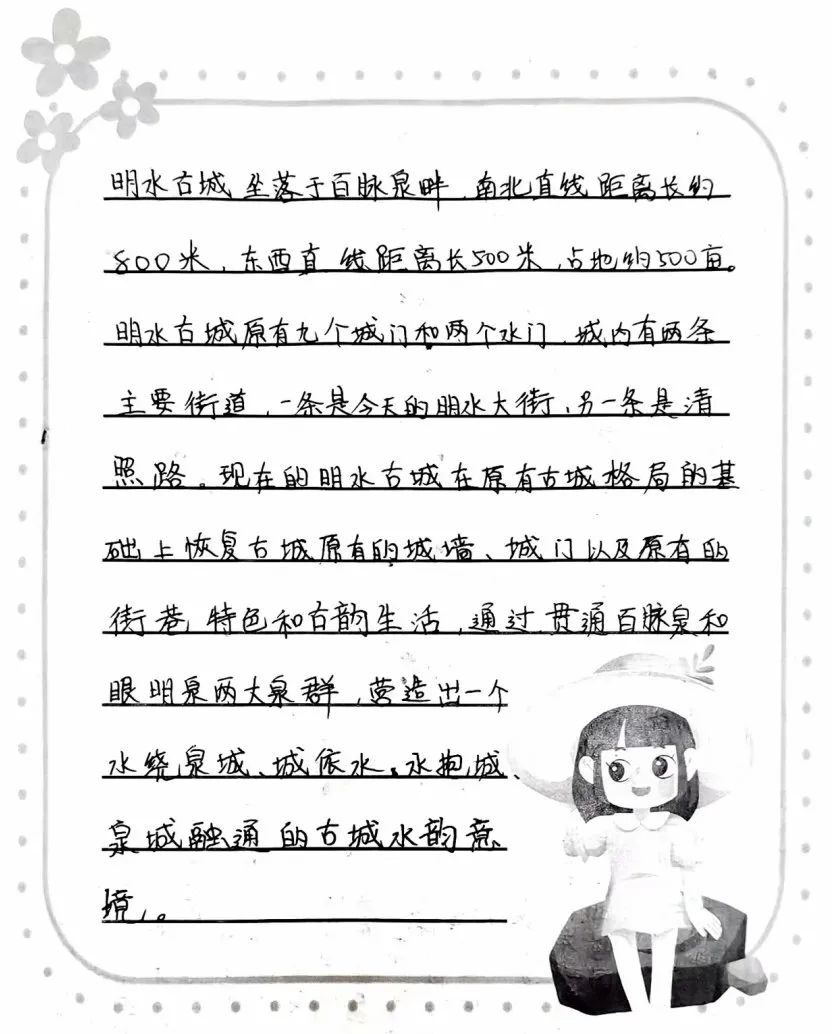 明水古城坐落于百脉泉畔,南北直线距离长约
800米,东西直线距离长500米,占地约500亩。
明水古城原有九个城门和两个水门,城内有两条
主要街道,一条是今天的明水大街,另一条是清
照路。现在的明水古城在原有古城格局的基
础上恢复古城原有的城墙、城门以及原有的
街巷特色和古韵生活,通过贯通百脉泉和
眼明泉两大泉群,营造出一个
水绕泉城、城依水、水抱城、
泉城融通的古城水韵意
境。